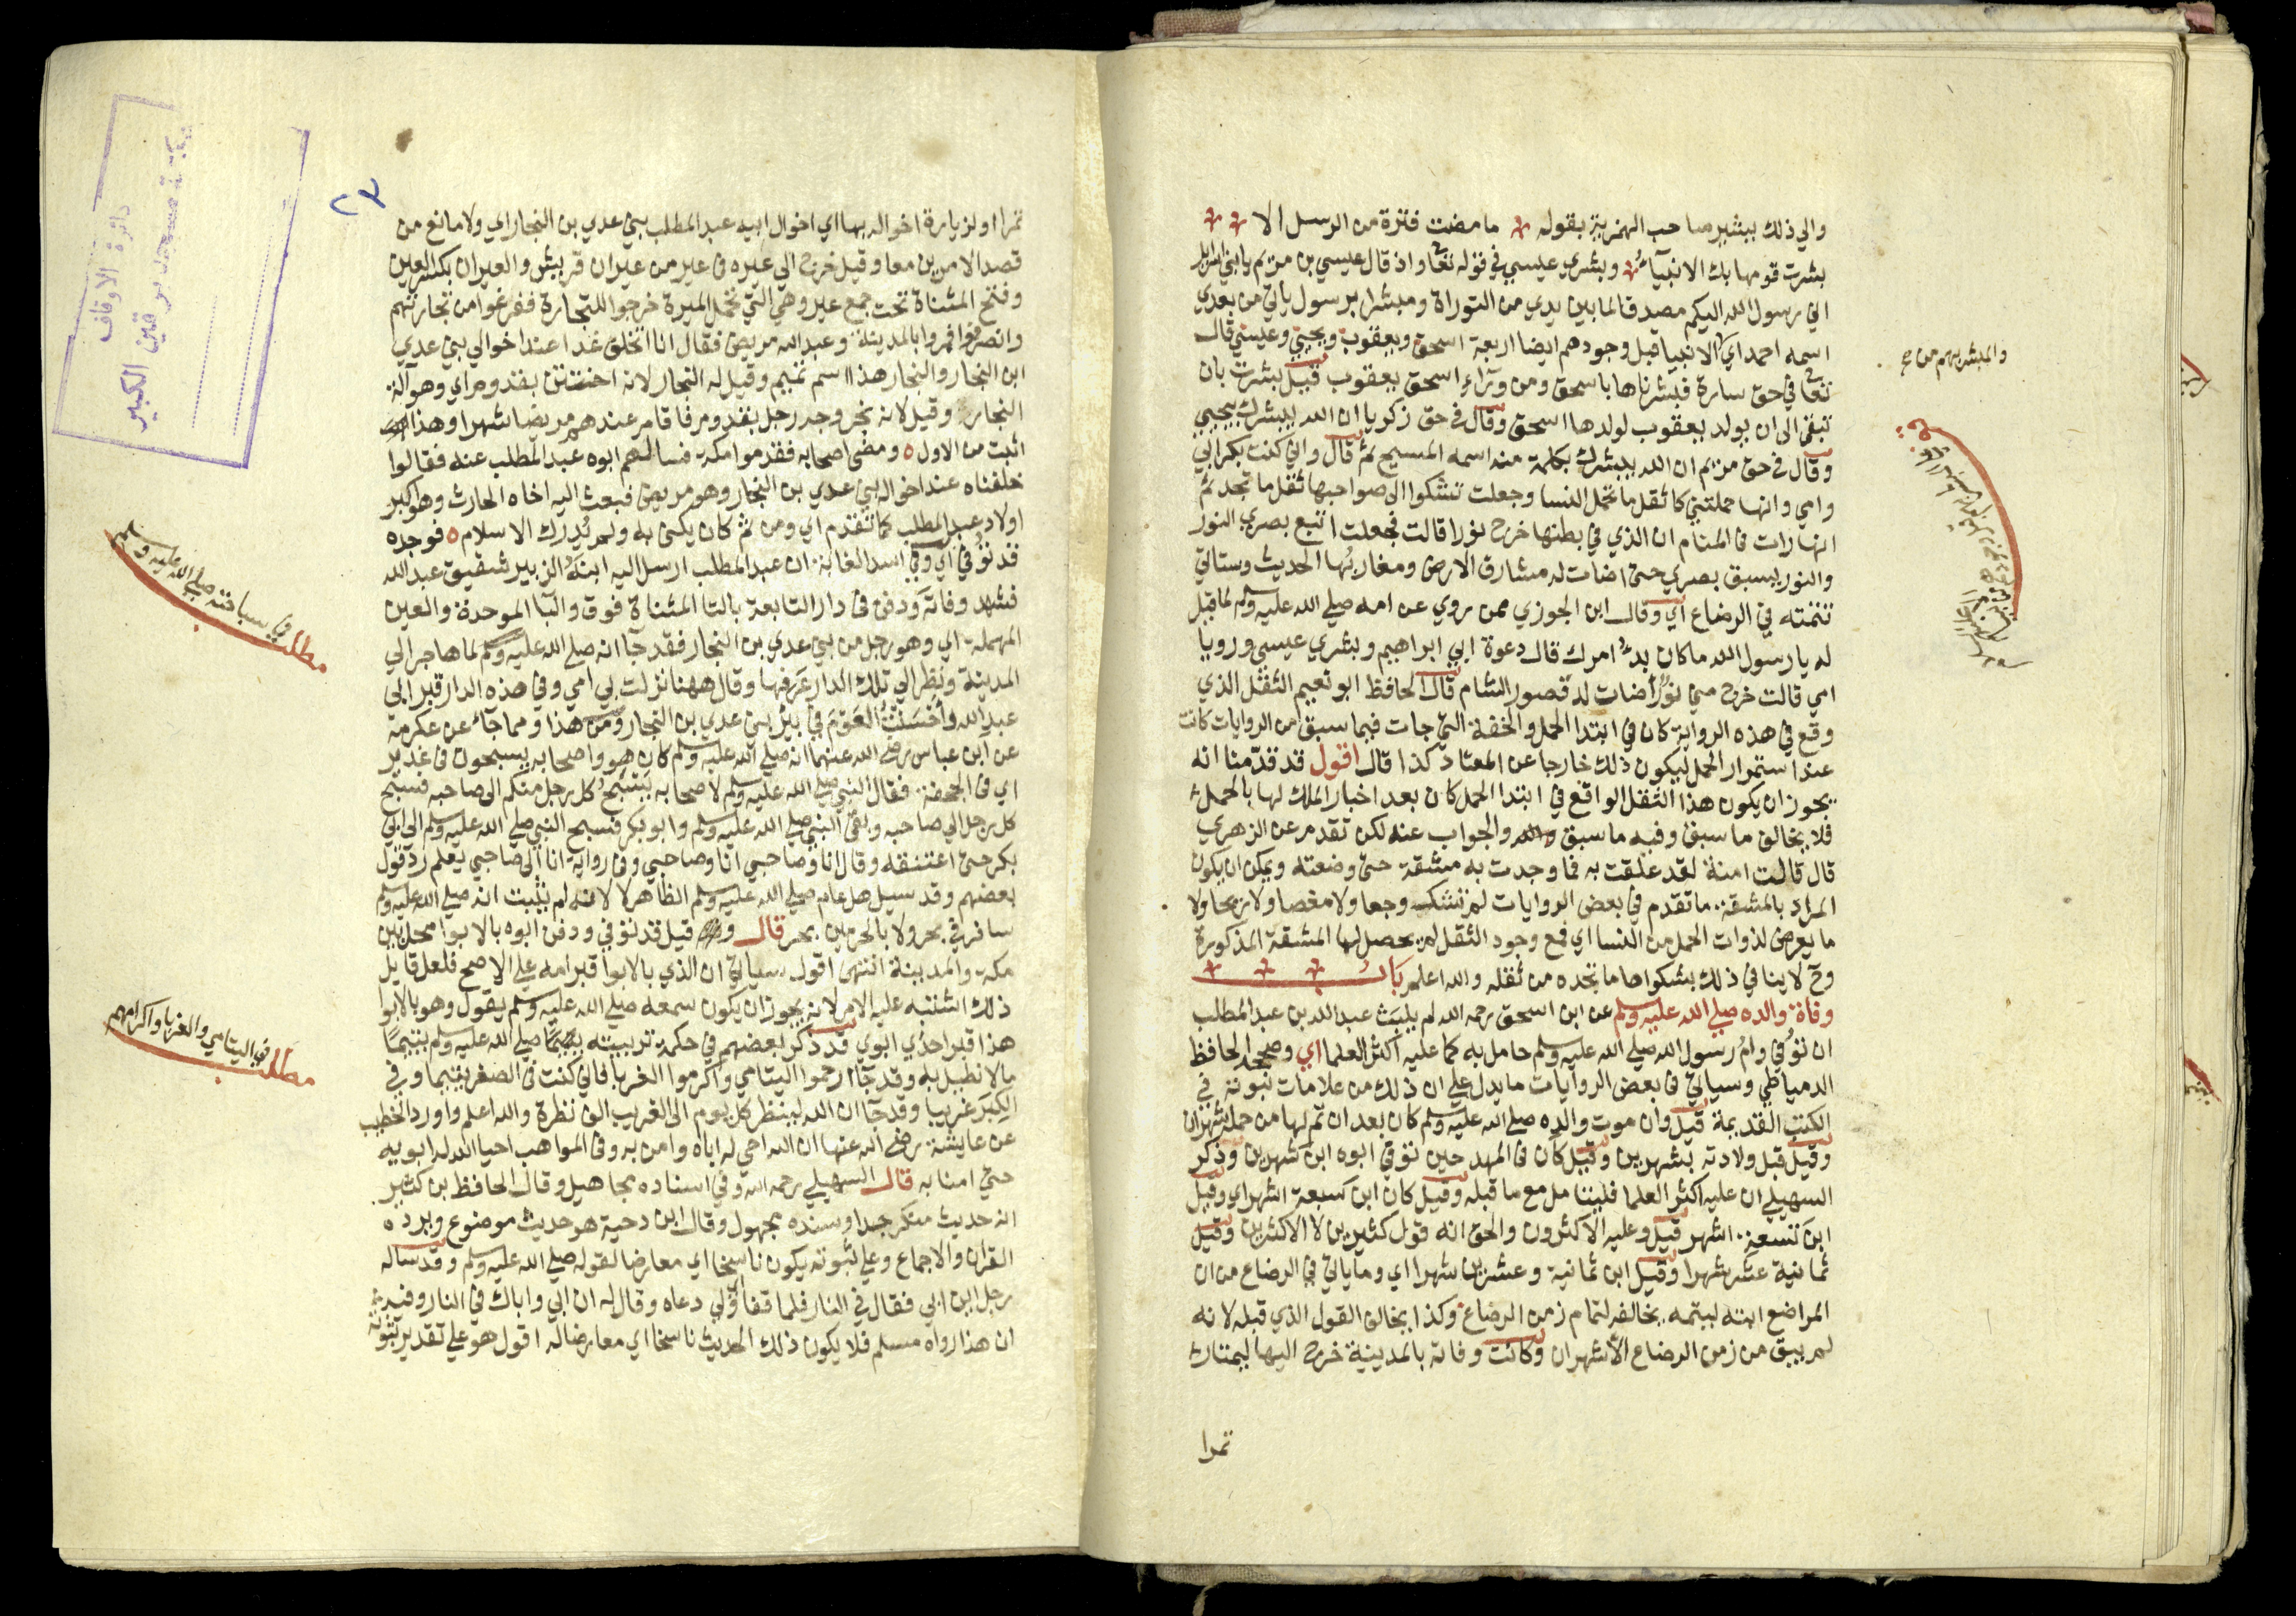 والي ذلك يشير صاحب الهمزية بقوله ما مضت فترة من الرسل الا
بشرت قومها بك الانبيآء وبشري عيسي في قوله تعا واذ قال عيسي بن مريم يا بني اسرايل
اني رسول الله اليكم مصدقا لما بين يدي من التوراة ومبشرا برسول ياتي من بعدي
اسمه احمد اي الانبيا قبل وجودهم ايضا اربعة اسحق ويعقوب ويحيي وعيسي قال
والمبشر بهم من
تعا في حق سارة فبشرناها باسحق ومن ورآء اسحق يعقوب قيل بشرت بان
تبقى الى ان يولد يعقوب لولدها اسحق وقال في حق زكريا ان الله يبشرك بيحيي
وقال في حق مريم ان الله يبشرك بكلمة منه اسمه المسيح ثم قال واني كنت بكر ابي
وامي وانها حملتني كاثقل ما تحمل النسا وجعلت تشكوا الى صواحبها ثقل ما تجد ثم
انها رات في المنام ان الذي في بطنها خرج نورا قالت فجعلت اتبع بصري النور
والنور يسبق بصري حتى اضات له مشارق الارض ومغاربها الحديث وستاتي
تتمته في الرضاع اي وقال ابن الجوزي ممن روي عن امه صلي الله عليه وسلم لما قيل
له يا رسول الله ما كان بدء امرك قال دعوة ابي ابراهيم وبشري عيسي ورويا
امي قالت خرج مني نورا اضات له قصور الشام قال الحافظ ابو نعيم الثقل الذي
وقع في هذه الرواية كان في ابتدا الحمل والخفة التي جات فيما سبق من الروايات كانت
عند استمرار الحمل ليكون ذلك خارجا عن المعتاد كذا قال اقول قد قدمنا انه
يجوز ان يكون هذا الثقل الواقع في ابتدا الحمل كان بعد اخبار الملك لها بالحمل
فلا يخالف ما سبق وفيه ما سبق والجواب عنه لكن تقدم عن الزهري
قال قالت امنة لقد علقت به فما وجدت به مشقة حتى وضعته ويمكن ان يكون
المراد بالمشقة ما تقدم في بعض الروايات لم تشك وجعا ولا مغصا ولا ريحا ولا
ما يعرض لذوات الحمل من النسا اي فمع وجود الثقل لم يحصل لها المشقة المذكورة
وح لا ينافي ذلك شكواها ما تجده من ثقله والله اعلم باب
وفاة والده صلي الله عليه وسلم عن ابن اسحق رحمه الله لم يلبث عبد الله بن عبد المطلب
ان توفي وام رسول الله صلي الله عليه وسلم حامل به كما عليه اكثر العلما اي وصححه الحافظ
الدمياطي وسياتي في بعض الروايات ما يدل علي ان ذلك من علامات نبوته في
الكتب القديمة قيل وان موت والده صلي الله عليه وسلم كان بعد ان تم لها من حملها شهران
وقيل قبل ولادته بشهرين وقيل كان في المهد حين توفي ابوه ابن شهرين وذكر
السهيلي ان عليه اكثر العلما فليتامل مع ما قبله وقيل كان ابن سبعة اشهر اي وقيل
ابن تسعة اشهر قيل وعليه الاكثرون والحق انه قول كثيرين لا الاكثرين وقيل
ثمانية عشر شهرا وقيل ابن ثمانية وعشرين شهرا اي وما ياتي في الرضاع من ان
المراضع ابته ليتمه يخالفه لتمام زمن الرضاع وكذا يخالف القول الذي قبله لانه
لم يبق من زمن الرضاع الا شهران وكانت وفاته بالمدينة خرج اليها ليمتار
تمرا
٢٣
تمرا او لزيارة اخواله بها اي اخوال ابيه عبد المطلب بني عدي بن النجار اي ولا مانع من
قصد الامرين معا وقيل خرج الي غزه في عير من عيران قريش والعيران بكسر العين
وفتح المثناة تحت جمع عير وهي التي تحمل الميرة خرجوا للتجارة ففرغوا من تجارتهم
وانصرفوا فمروا بالمدينة وعبد الله مريض فقال انا اتخلف غدا عند اخوالي بني عدي
ابن النجار والنجار هذا اسم تميم وقيل له النجار لانه اختتن بقدوم اي وهو آلة
النجار وقيل لانه نجر وجه رجل بقدوم فاقام عندهم مريضا شهرا وهذا
اثبت من الاول ٥ ومضي اصحابه فقدموا مكة فسالهم ابوه عبد المطلب عنه فقالوا
خلفناه عند اخواله بني عدي بن النجار وهو مريض فبعث اليه اخاه الحارث وهو اكبر
اولاد عبد المطلب كما تقدم اي ومن ثم كان يكنى به ولم يدرك الاسلام ٥ فوجده
قد توفي اي وفي اسد الغابة ان عبد المطلب ارسل اليه ابنه الزبير شقيق عبد الله
فشهد وفاته ودفن في دار التابعة بالتا المثناة فوق والبا الموحدة والعين
المهملة اي وهو رجل من بني عدي بن النجار فقد جآ انه صلي الله عليه وسلم لما هاجر الي
المدينة ونظر الي تلك الدار عرفها وقال ههنا نزلت بي امي وفي هذه الدار قبر ابي
عبد الله واحسنت العوم في بير بني عدي بن النجار ومن هذا ومما جآء عن عكرمة
عن ابن عباس رضي الله عنهما انه صلي الله عليه وسلم كان هو واصحابه يسبحون في غدير
اي في الجحفة فقال النبي صلي الله عليه وسلم لاصحابه يسبح كل رجل منكم الى صاحبه فسبح
كل رجل الي صاحبه وبقي النبي صلي الله عليه وسلم وابو بكر فسبح النبي صلي الله عليه وسلم الى ابي
بكر حتى اعتنقه وقال انا وصاحبي انا وصاحبي وفي رواية انا الى صاحبي يعلم رد قول
بعضهم وقد سيل هل عام صلي الله عليه وسلم الظاهر لا لانه لم يثبت انه صلي الله عليه وسلم
سافر في بحر ولا بالحرمين بحر قال وقيل قد توفي ودفن ابوه بالابوا محل بين
مكة والمدينة انتهى اقول سياتي ان الذي بالابوا قبر امه علي الاصح فلعل قايل
ذلك اشتبه عليه الامر لانه يجوز ان يكون سمعه صلي الله عليه وسلم يقول وهو بالابوا
هذا قبر احدي ابوي قد ذكر بعضهم في حكمة تربيته صلي الله عليه وسلم يتيما
ما لا نطيل به وقد جآ ارحموا اليتامي واكرموا الغربا فاني كنت في الصغر يتيما وفي
الكبر غريبا وقد جآ ان الله لينظر كل يوم الى الغريب الف نظرة والله اعلم واورد الخطيب
عن عايشة رضي الله عنها ان الله احي له اباه وامن به وفي المواهب احيا الله له ابويه
حتي امنا به قال السهيلي رحمه الله وفي اسناده مجاهيل وقال الحافظ بن كثير
انه حديث منكر جدا وسنده مجهول وقال ابن دحية هو حديث موضوع ويرده
القران والاجماع وعلي ثبوته يكون ناسخا اي معارضا لقوله صلي الله عليه وسلم وقد ساله
رجل اين ابي فقال في النار فلما قفا اي ولي دعاه وقال له ان ابي واباك في النار وفيه
ان هذا رواه مسلم فلا يكون ذلك الحديث ناسخا اي معارضا له اقول هو علي تقدير ثبوته
مطلب في سباحته صلي الله عليه وسلم
مطلب في اليتامي والغربا واكرامهم
دائرة الاوقاف
مكتبة مسجد برقين الكبير